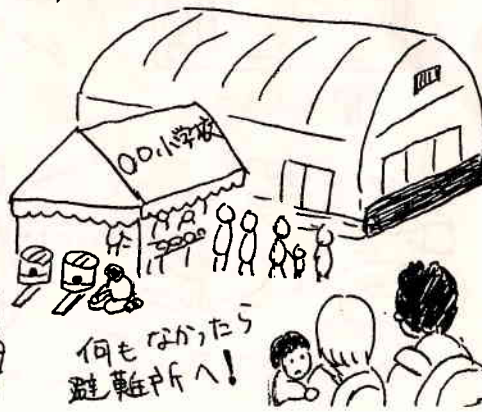 〇〇小学校
何もなかったら
避難所へ!